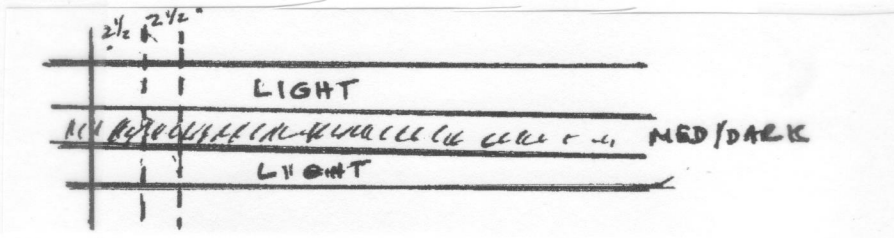 2½ 2½"
LIGHT
MED/DARK
LIGHT